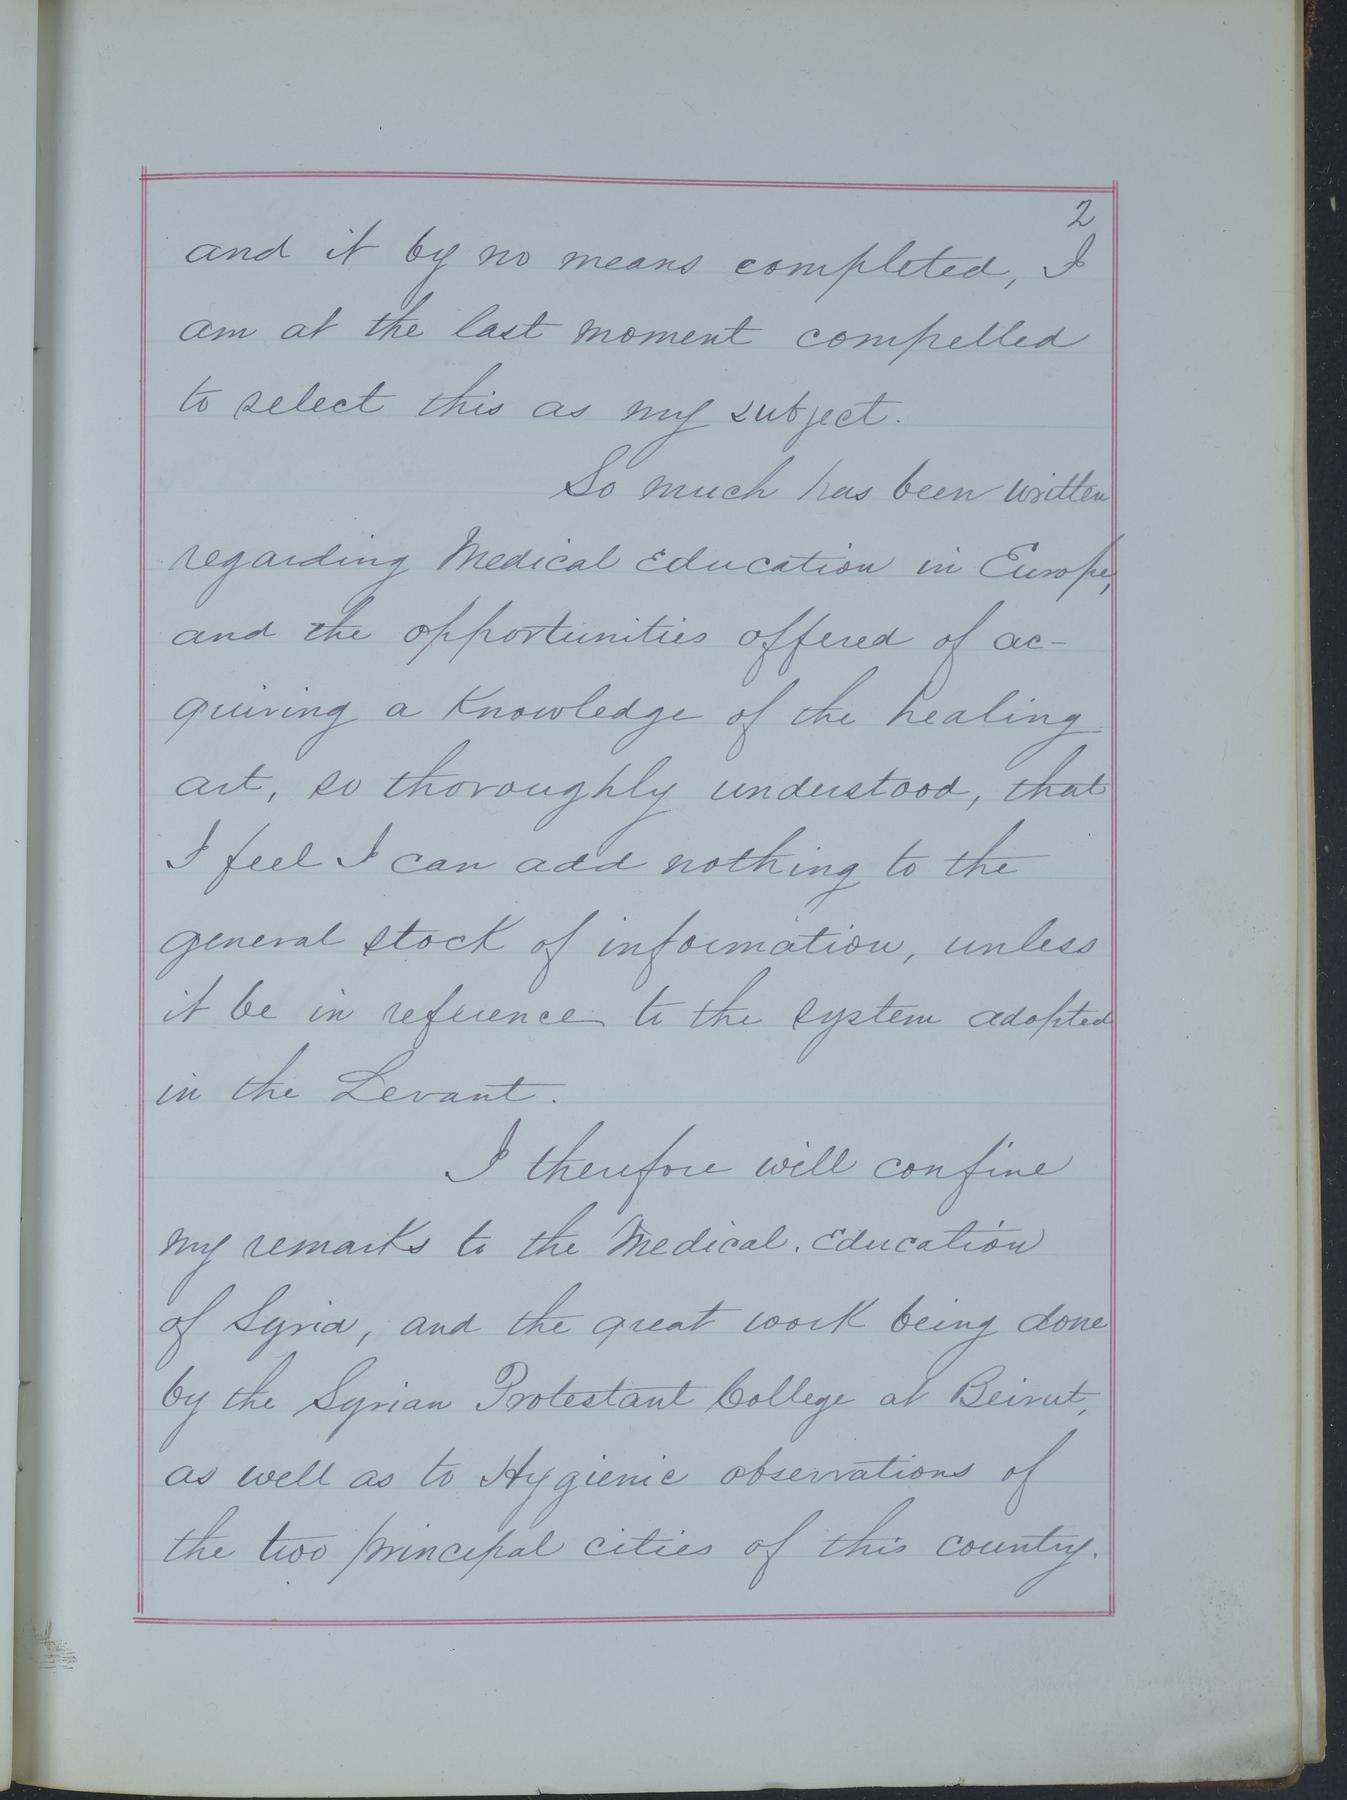 2
and it by no means completed, I
am at the last moment compelled
to select this as my subject.
So much has been written
regarding Medical Education in Europe,
and the opportunities offered of ac-
quiring a Knowledge of the healing
art, so thoroughly understood, that
I feel I can add nothing to the
general stock of information, unless
it be in reference to the system adopted
in the Levant.
I therefore will confine
my remarks to the Medical. Education
of Syria, and the great work being done
by the Syrian Protestant College at Beirut,
as well as to Hygienic observations of
the two principal cities of this country.